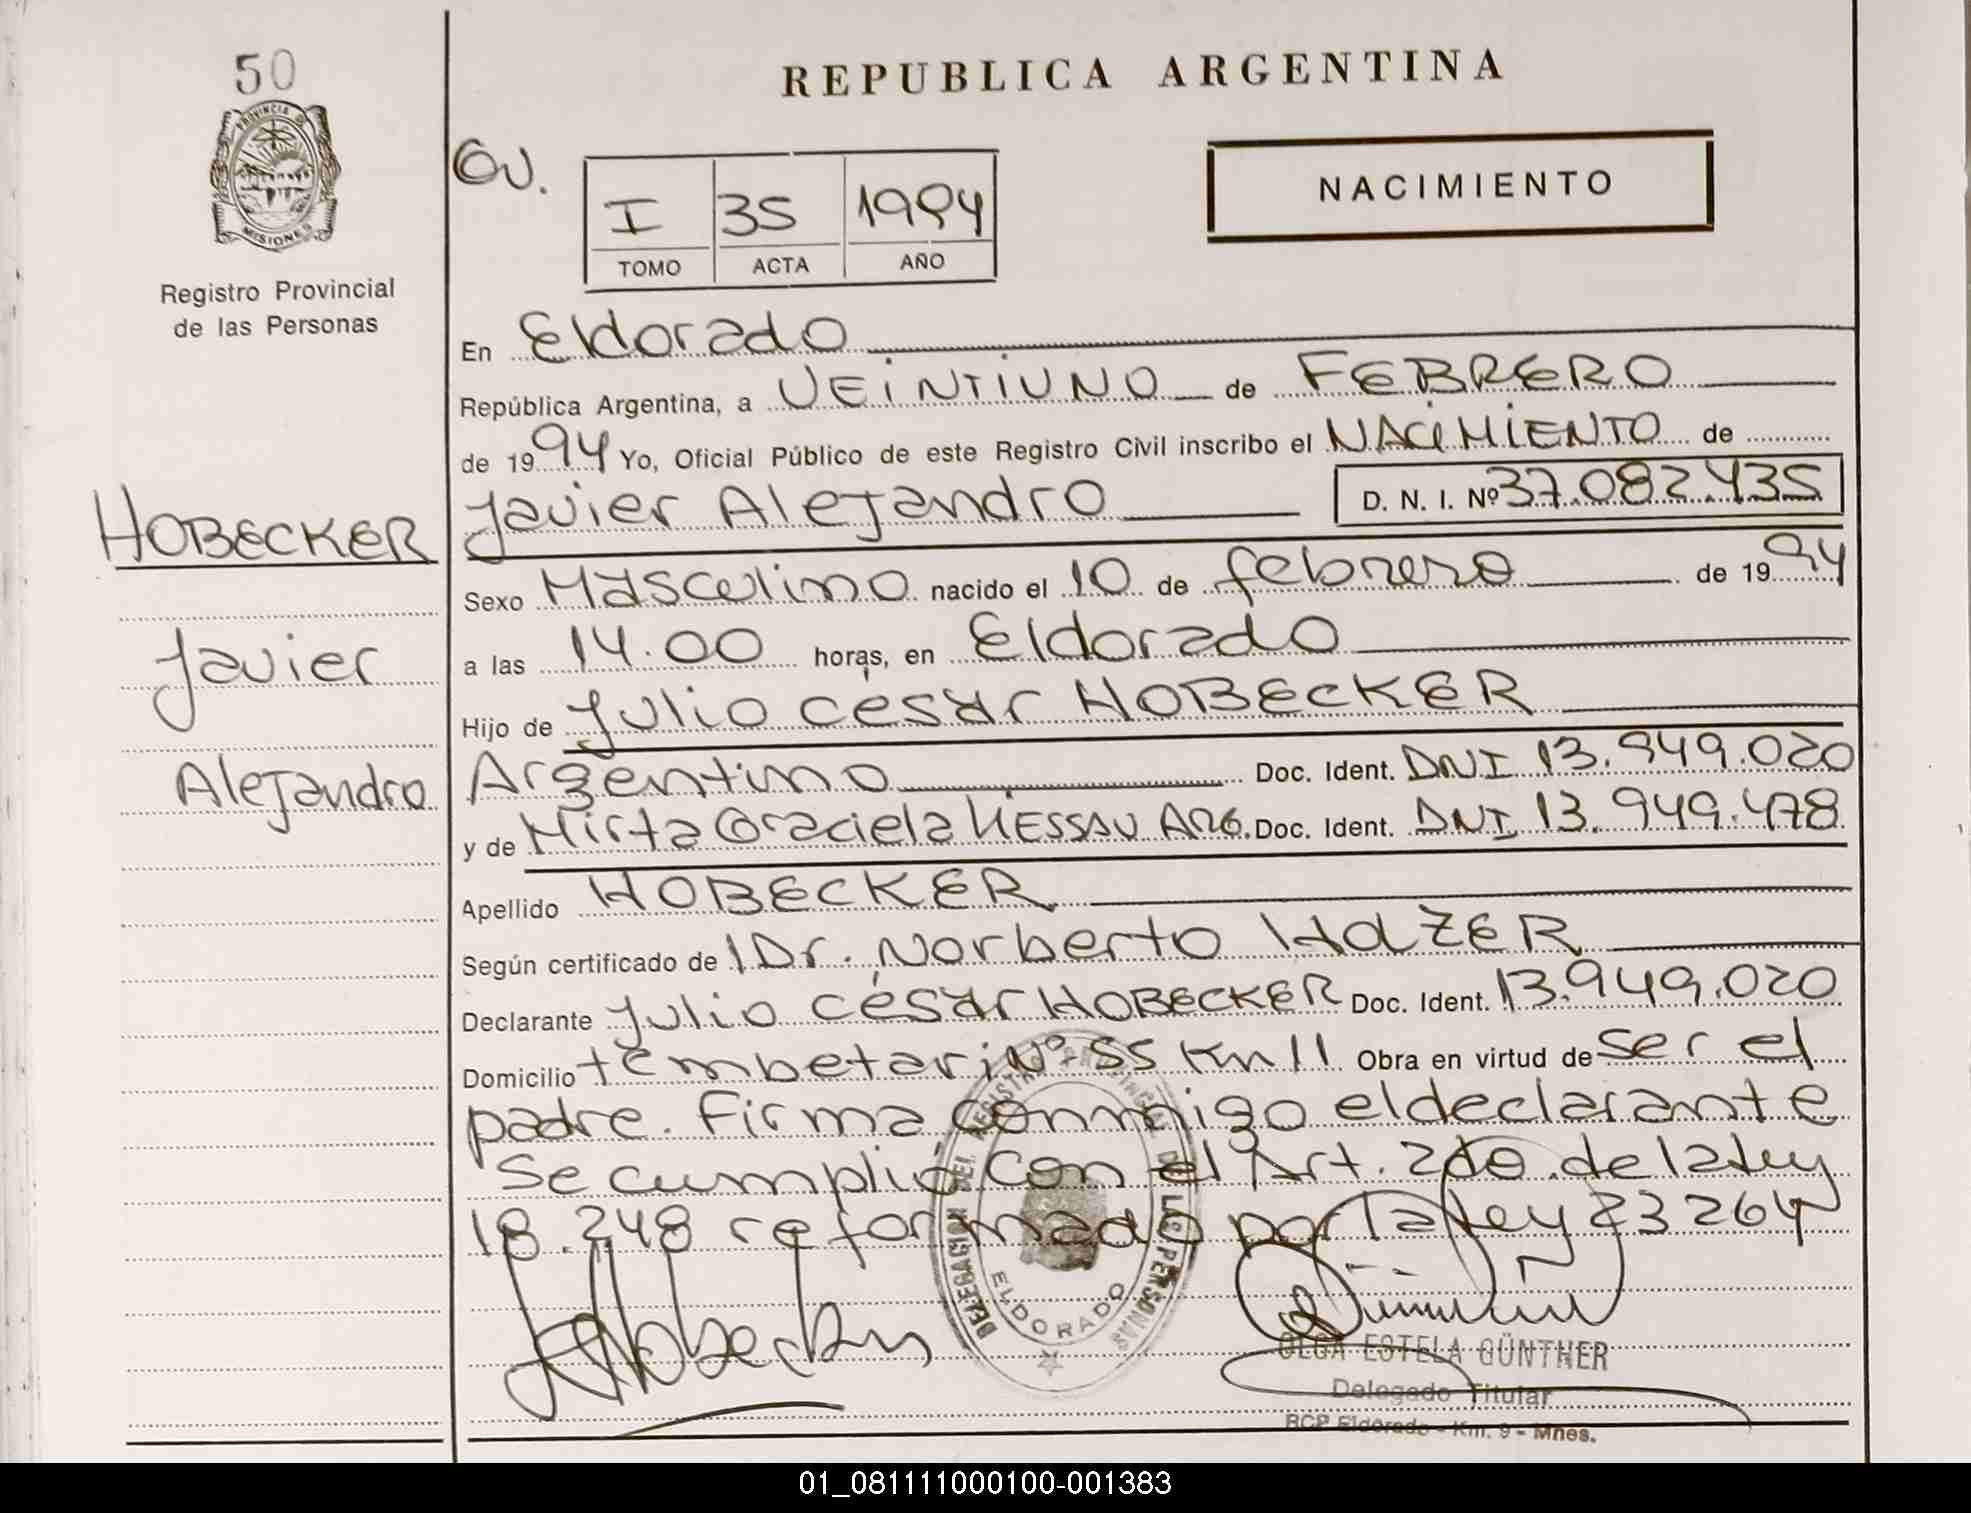 50
PROVINCIA DE
MISIONES
Registro Provincial
de las Personas
HOBECKER
Javier
Alejandro
REPUBLICA ARGENTINA
I 35 1994
TOMO ACTA AÑO
NACIMIENTO
En Eldorado
República Argentina, a VEINTIUNO de FEBRERO
de 1994 Yo, Oficial Público de este Registro Civil inscribo el NACIMIENTO de
Javier Alejandro D. N. I. Nº 37.082.435
Sexo Masculino nacido el 10 de febrero de 1994
a las 14.00 horas, en Eldorado
Hijo de Julio César HOBECKER
Argentino Doc. Ident. DNI 13.949.020
y de Mirta Graciela KESSAU ARG. Doc. Ident. DNI 13.949.478
Apellido HOBECKER
Según certificado de Dr. Norberto
Declarante Julio César HOBECKER Doc. Ident. 13.949.020
Domicilio tembetari Nº 55 Km 11 Obra en virtud de ser el
padre. Firma conmigo el declarante
Se cumplió con el Art. 2do. de la ley
18.248 reformado por la ley 23264
DELEGACION DEL REGISTRO PROVINCIAL DE LAS PERSONAS
ELDORADO
OLGA ESTELA GÜNTHER
Delegado Titular
RCP Eldorado - Km. 9 - Mnes.
01_081111000100-001383